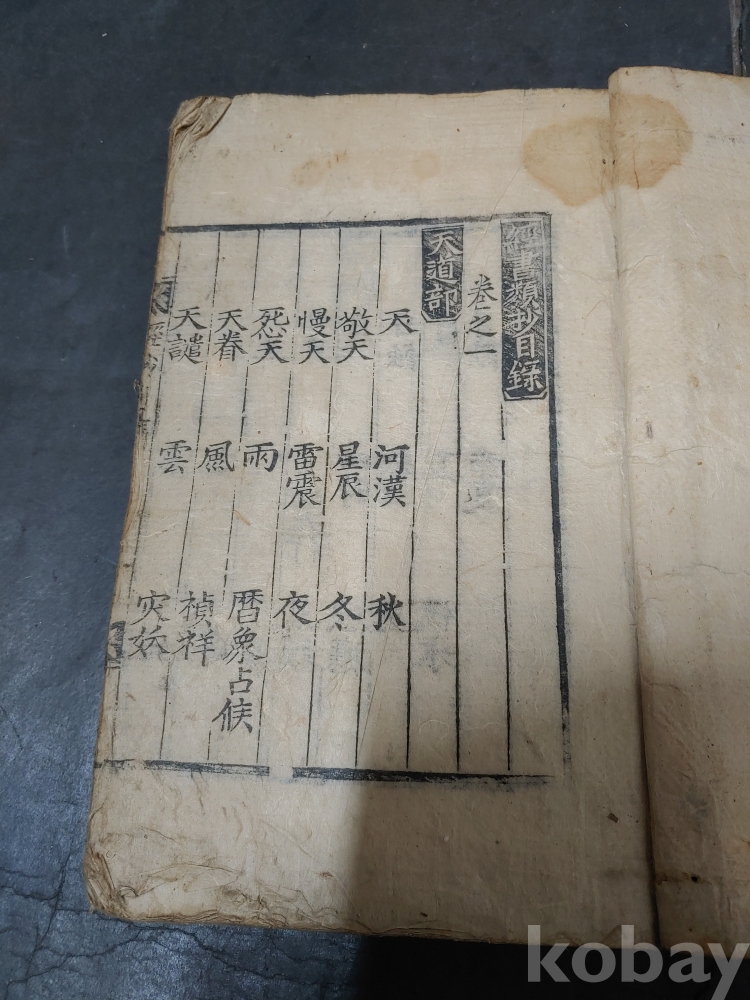 經書類抄目錄
卷之一
天道部
天 河漢 秋
敬天 星辰 冬
慢天 雷震 夜
㤪天 雨 暦象占候
天眷 風 禎祥
天譴 雲 灾妖
kobay